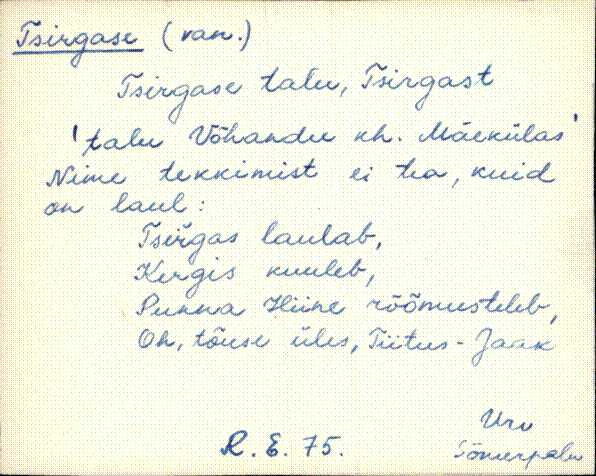 Tsirgase (van.)
Tsirgase talu, Tsirgast
'talu Võhandu kh. Mäekülas'
Nime tekkimist ei tea, kuid
on laul:
Tsirgas laulab,
Kergis kuuleb,
Punna Hiine rõõmusteleb,
Oh, tõuse üles, Tiitus-Jaak
Urv
R. E. 75.
Sõmerpalu